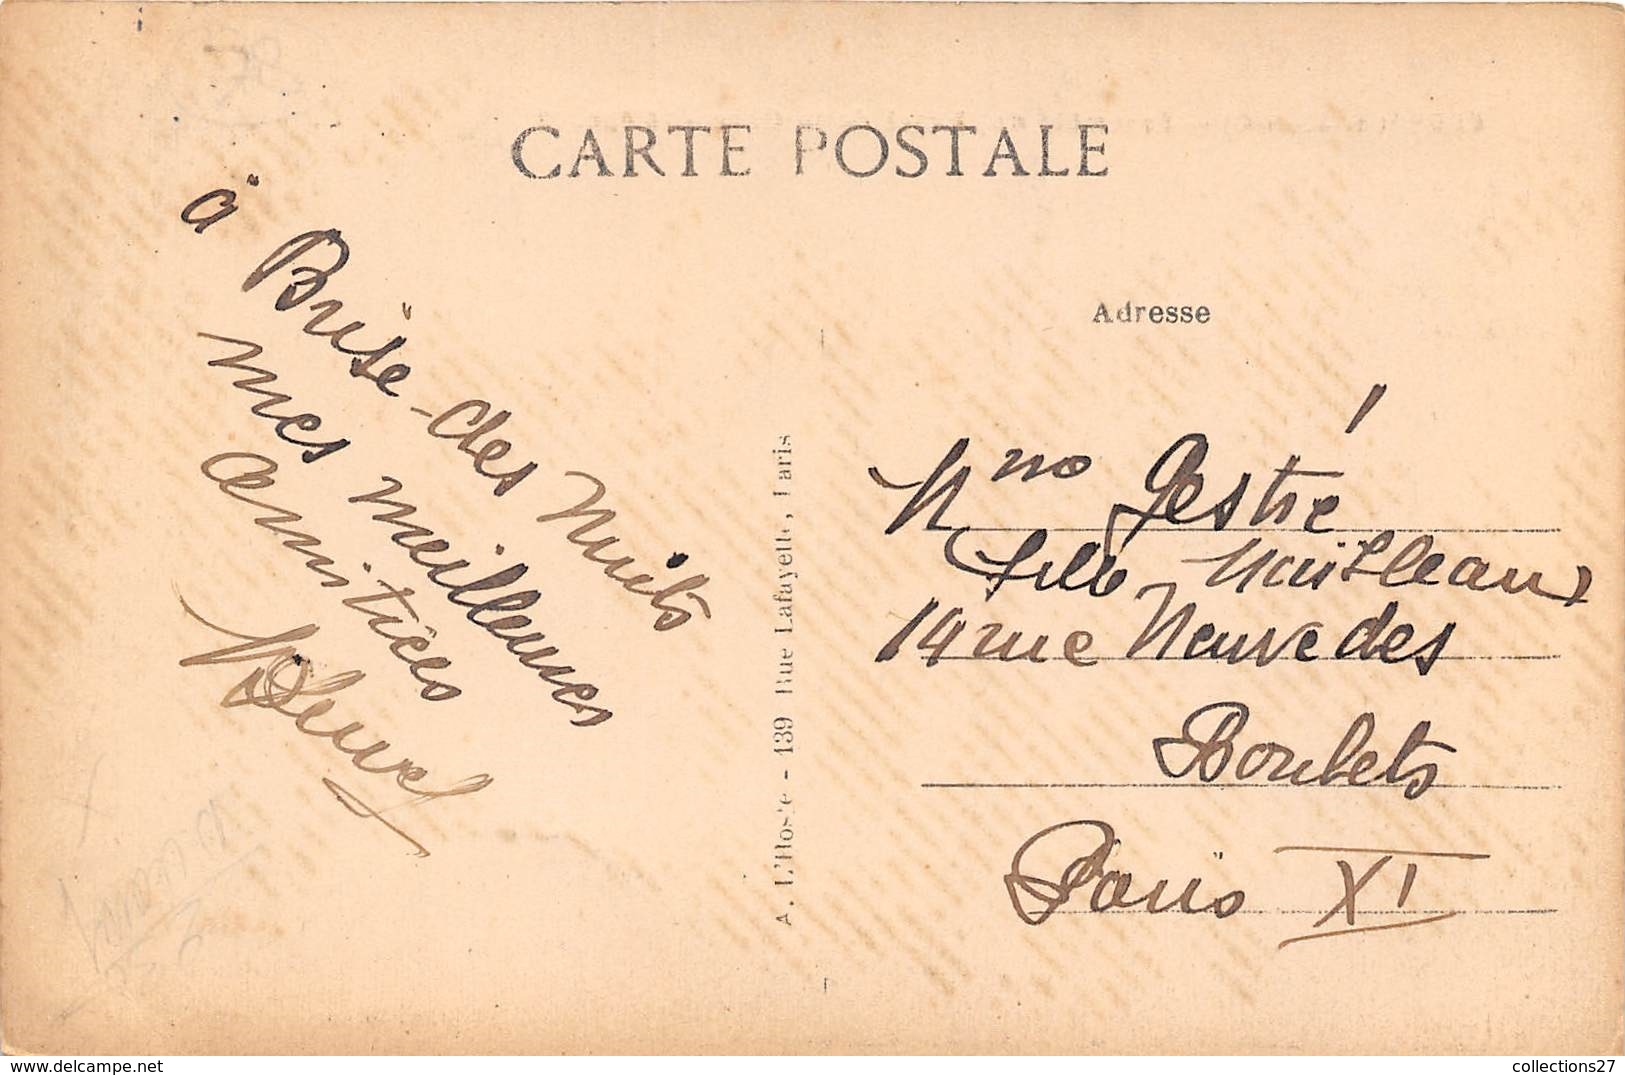 CARTE POSTALE
à Brise-des Nuits
mes meilleures
amitiées
A. L'Hoste - 139 Rue Lafayette, Paris
Adresse
Mme Gestié
14 rue Neuve des
Boulets
Paris XI
www.collections27